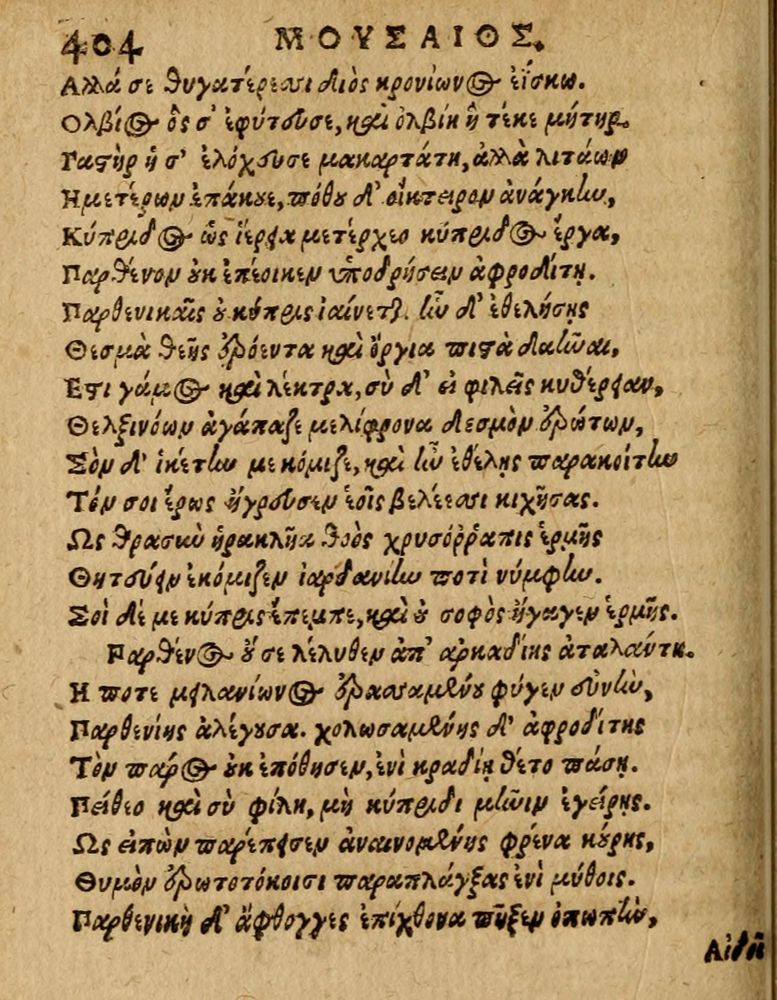 404 ΜΟΥΣΑΙΟΣ.
Αλλά σε θυγατέρεσσι διὸς κρονίωνος ἐΐσκω.
Ολβίος ὅς σ' ἐφύτευσε, καὶ ὀλβίη ἣ τέκε μήτηρ.
Γαστὴρ ἥ σ' ἐλόχευσε μακαρτάτη, ἀλλὰ λιτάων
Ημετέρων ἐπάκουε, πόθου δ' οἴκτειρον ἀνάγκην,
Κύπριδος ὡς ἱέρεια μετέρχεο κύπριδος ἔργα,
Παρθένον οὐκ ἐπέοικεν ὑποδρήσσειν ἀφροδίτῃ.
Παρθενικαῖς οὐ κύπρις ἰαίνεται. ἢν δ' ἐθελήσῃς
Θεσμὰ θεῆς ἐρόεντα καὶ ὄργια πιστὰ δαῶναι,
Εστι γάμος καὶ λέκτρα, σὺ δ' εἰ φιλεῖς κυθέρειαν,
Θελξινόων ἀγάπαζε μελίφρονα δεσμὸν ἐρώτων,
Σὸν δ' ἱκέτην με κόμιζε, καὶ ἢν ἐθέλῃς παρακοίτην
Τόν σοι ἔρως ἤγρευσεν ἑοῖς βελέεσσι κιχήσας.
Ως θρασὺν ἡρακλῆα θοὸς χρυσόρῥαπις ἑρμῆς
Θητεύειν ἐκόμιζεν ἰαρδανίην ποτὶ νύμφην.
Σοὶ δέ με κύπρις ἔπεμπε, καὶ οὐ σοφὸς ἤγαγεν ἑρμῆς.
Παρθένος οὔ σε λέληθεν ἀπ' ἀρκαδίης ἀταλάντη.
Η ποτε μειλανίωνος ἐρασσαμένου φύγεν εὐνὴν,
Παρθενίης ἀλέγουσα. χολωσαμένης δ' ἀφροδίτης
Τὸν πάρος οὐκ ἐπόθησεν, ἐνὶ κραδίῃ θέτο πάσῃ.
Πείθεο καὶ σὺ φίλη, μὴ κύπριδι μῆνιν ἐγείρῃς.
Ως εἰπὼν παρέπεισεν ἀναινομένης φρένα κούρης,
Θυμὸν ἐρωτοτόκοισι παραπλάγξας ἐνὶ μύθοις.
Παρθενικὴ δ' ἄφθογγες ἐπίχθονα πῆξεν ὀπωπὴν,
Αἰδοῖ